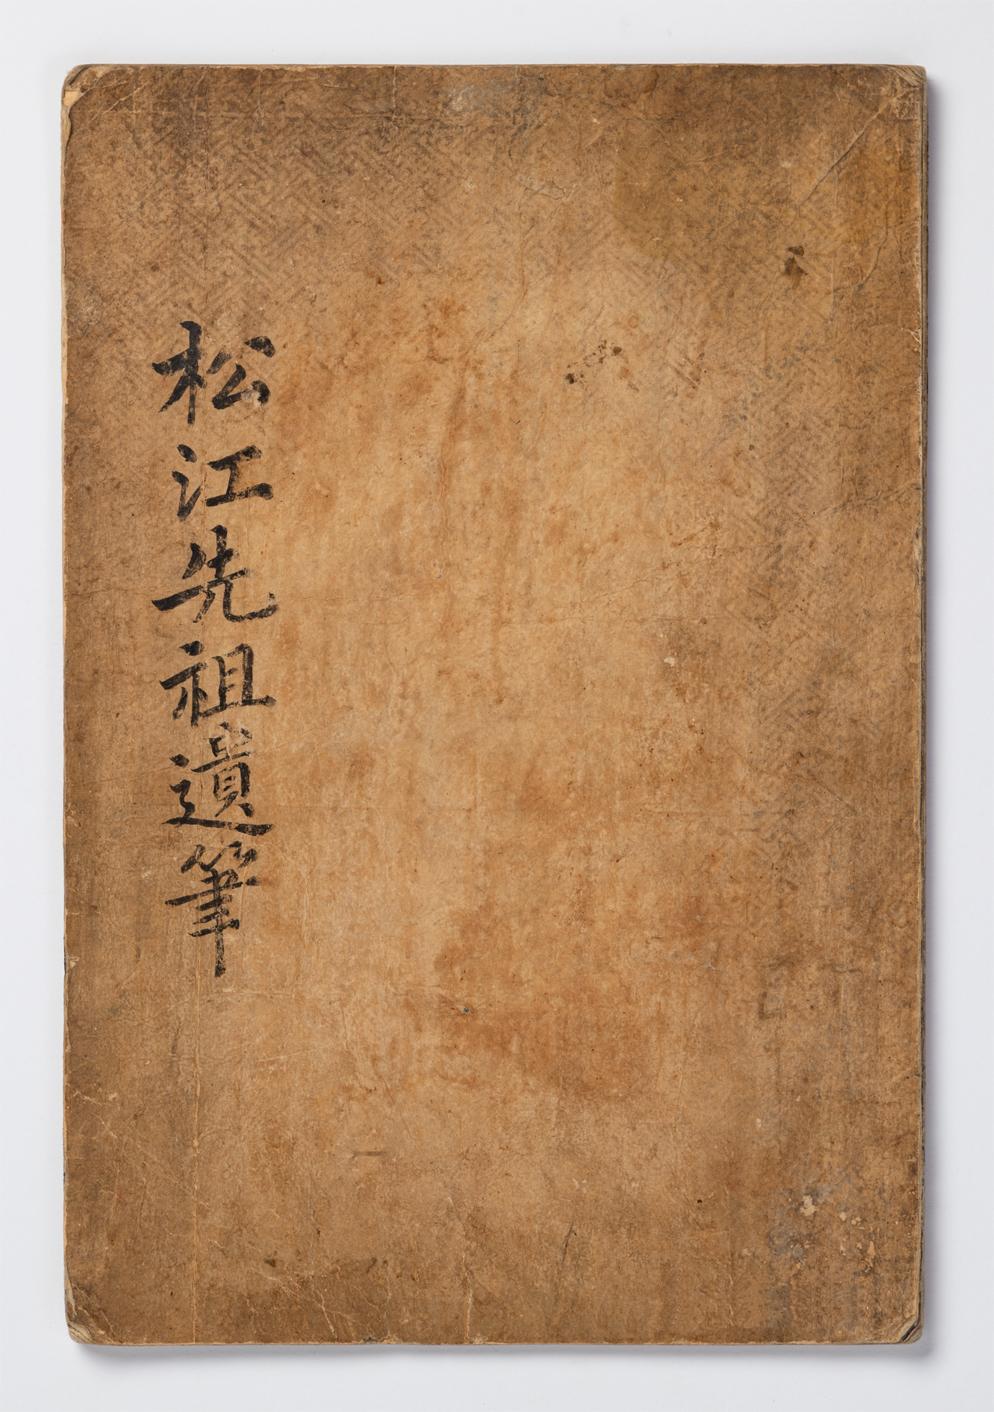 松江先祖遺筆